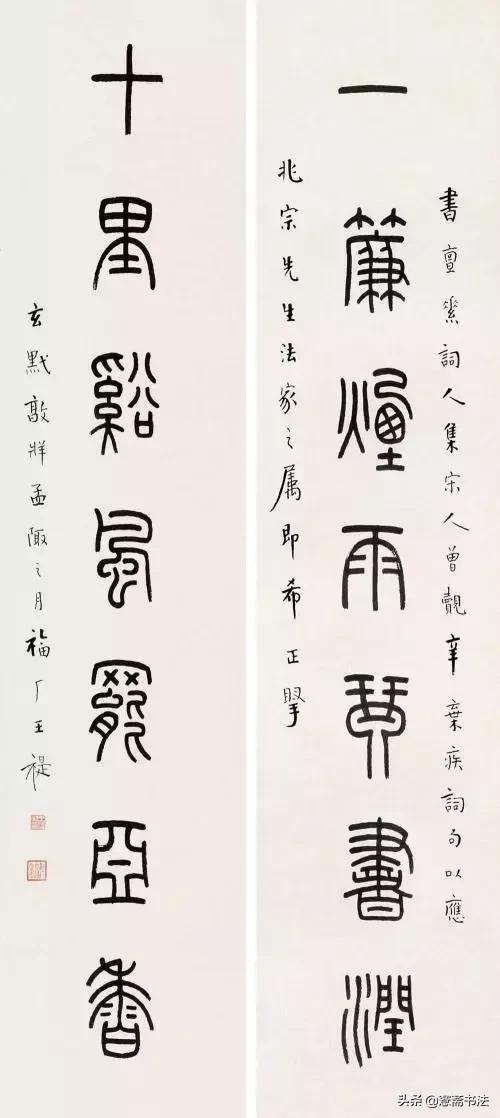 書亶素詞人集宋人曾覿辛棄疾詞句以應
一簾煙雨琴書潤
兆宗先生法家之属即希正掔
十里谿風罷亞香
玄黓敦牂孟陬之月福厂王禔
头条 @愙斋书法